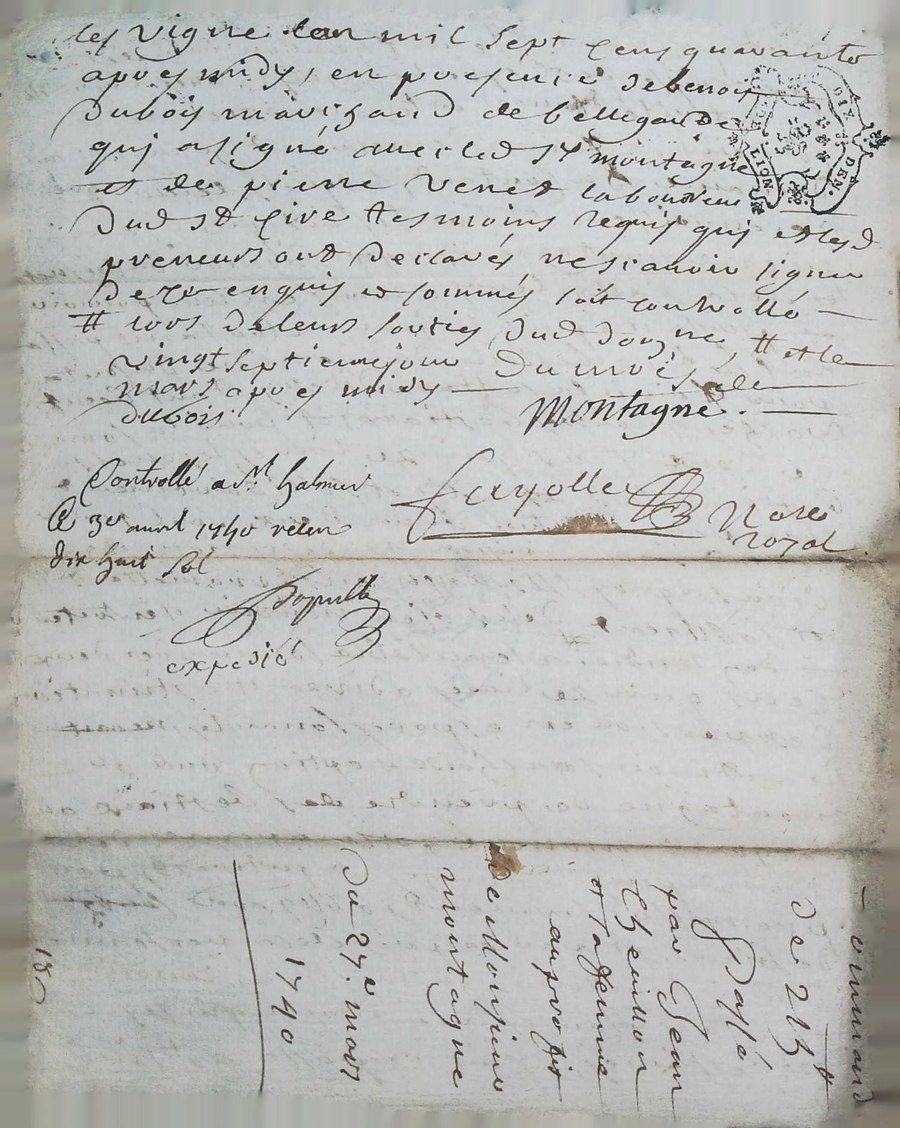 les vigne lan mil sept cens quarante
apres midy, en presence de benoit
Dubois marchand de bellegarde
qui a signé avec led sr montagne
et de pierre Venet laboureur
dud st Cire tesmoins requis qui et lesd
preneurs ont declarés ne scavoir signer
de ce enquis et sommés soit controllé
# lors de leurs sorties dud # et le
vingt septieme jour du mois de
mars apres midy
dubois Montagne.
Controllé a St halmier
le 3e avril 1740
dix huit sol
fayolle Nore
royal
expedié
De 215#
Passé
par Jean
et sa femme
au profit
de
montagne
du 27.e mars
1740